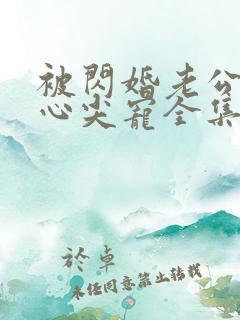 被閃婚老公
心尖寵全集
於卓
未经同意禁止转载